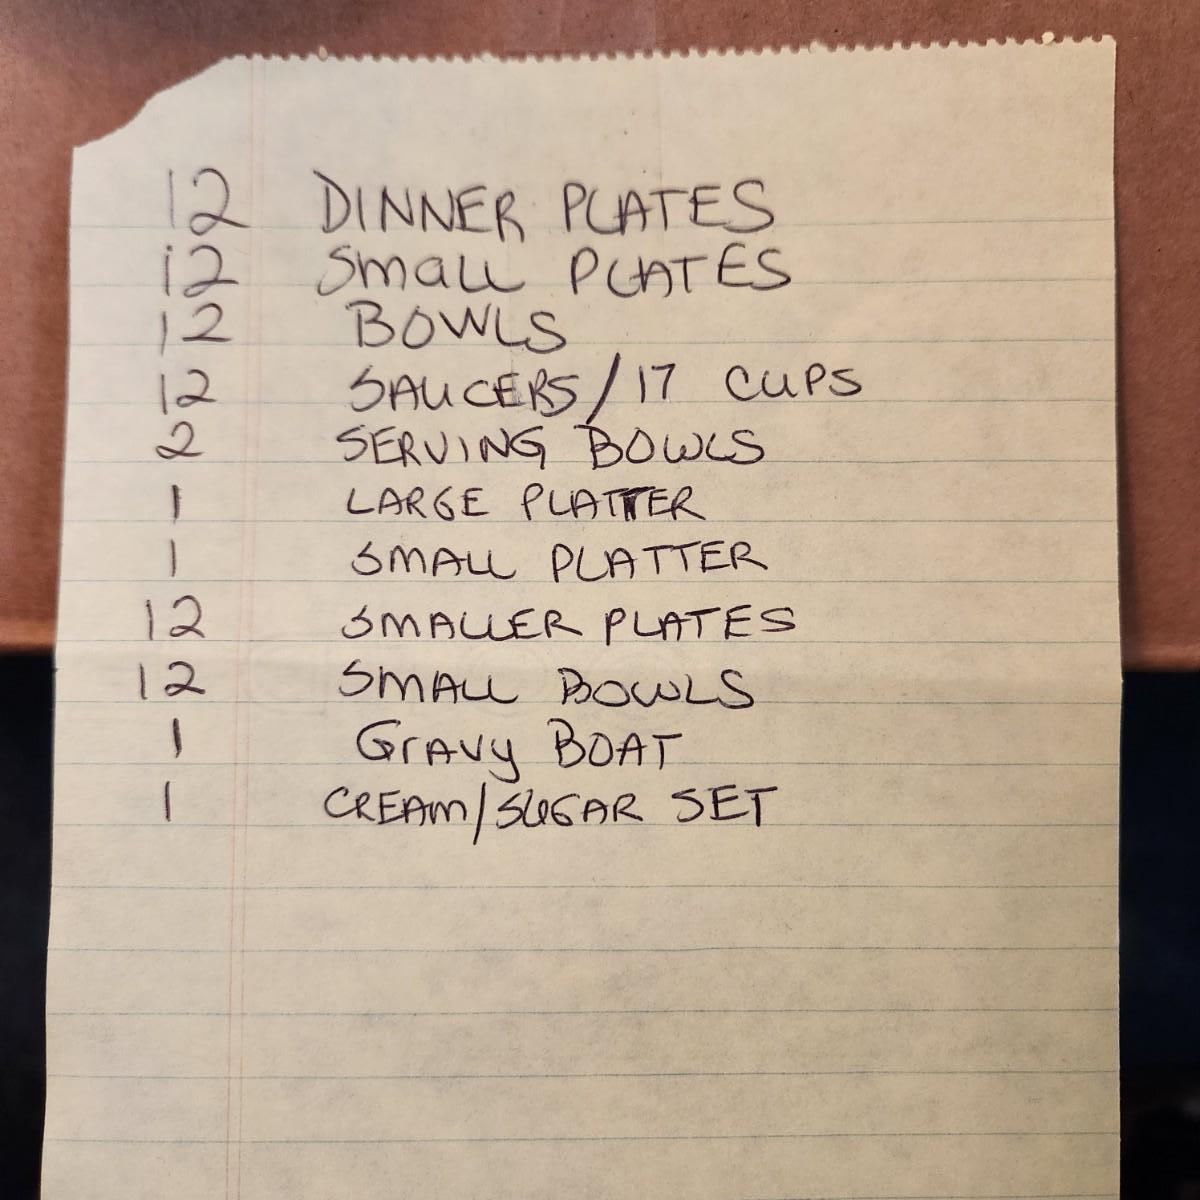 12 DINNER PLATES
12 Small PLATES
12 BOWLS
12 SAUCERS/17 CUPS
2 SERVING BOWLS
1 LARGE PLATTER
1 SMALL PLATTER
12 SMALLER PLATES
12 SMALL BOWLS
1 GrAVy BOAT
1 CREAM/SUGAR SET